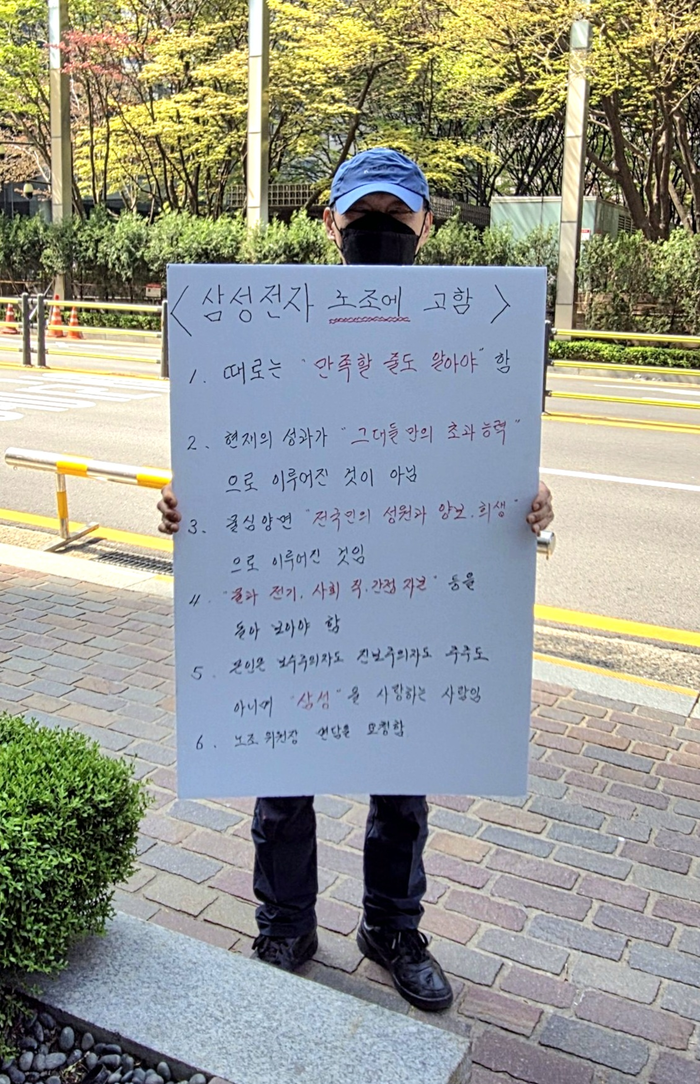 <삼성전자 노조에 고함>
1. 때로는 "만족할 줄도 알아야" 함
2. 현재의 성과가 "그대들만의 초과능력"
으로 이루어진 것이 아님
3. 물심양면 "전국민의 성원과 양보.희생"
으로 이루어진 것임
4. "물과 전기, 사회 직.간접 자본" 등을
돌아 보아야 함
5. 본인은 보수주의자도 진보주의자도 주주도
아니며 "삼성"을 사랑하는 사람임
6. 노조 위원장 면담을 요청함.